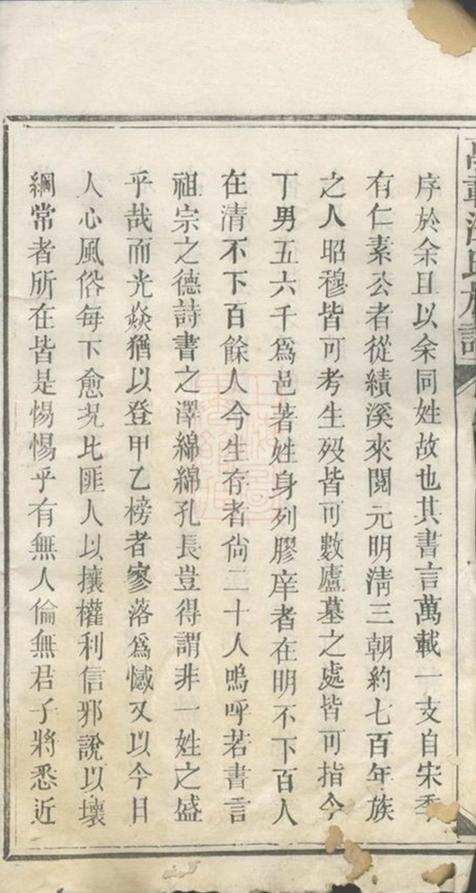 序於余且以余同姓故也其書言萬載一支自宋季
有仁素公者從績溪來閱元明清三朝約七百年族
之人昭穆皆可考生歿皆可數廬墓之處皆可指今
丁男五六千爲邑著姓身列膠庠者在明不下百人
在清不下百餘人今生存者尙二十人嗚呼若書言
祖宗之德詩書之澤綿綿孔長豈得謂非一姓之盛
乎哉而光焱猶以登甲乙榜者寥落爲憾又以今日
人心風俗每下愈况比匪人以攘權利信邪說以壞
綱常者所在皆是惕惕乎有無人倫無君子將悉近